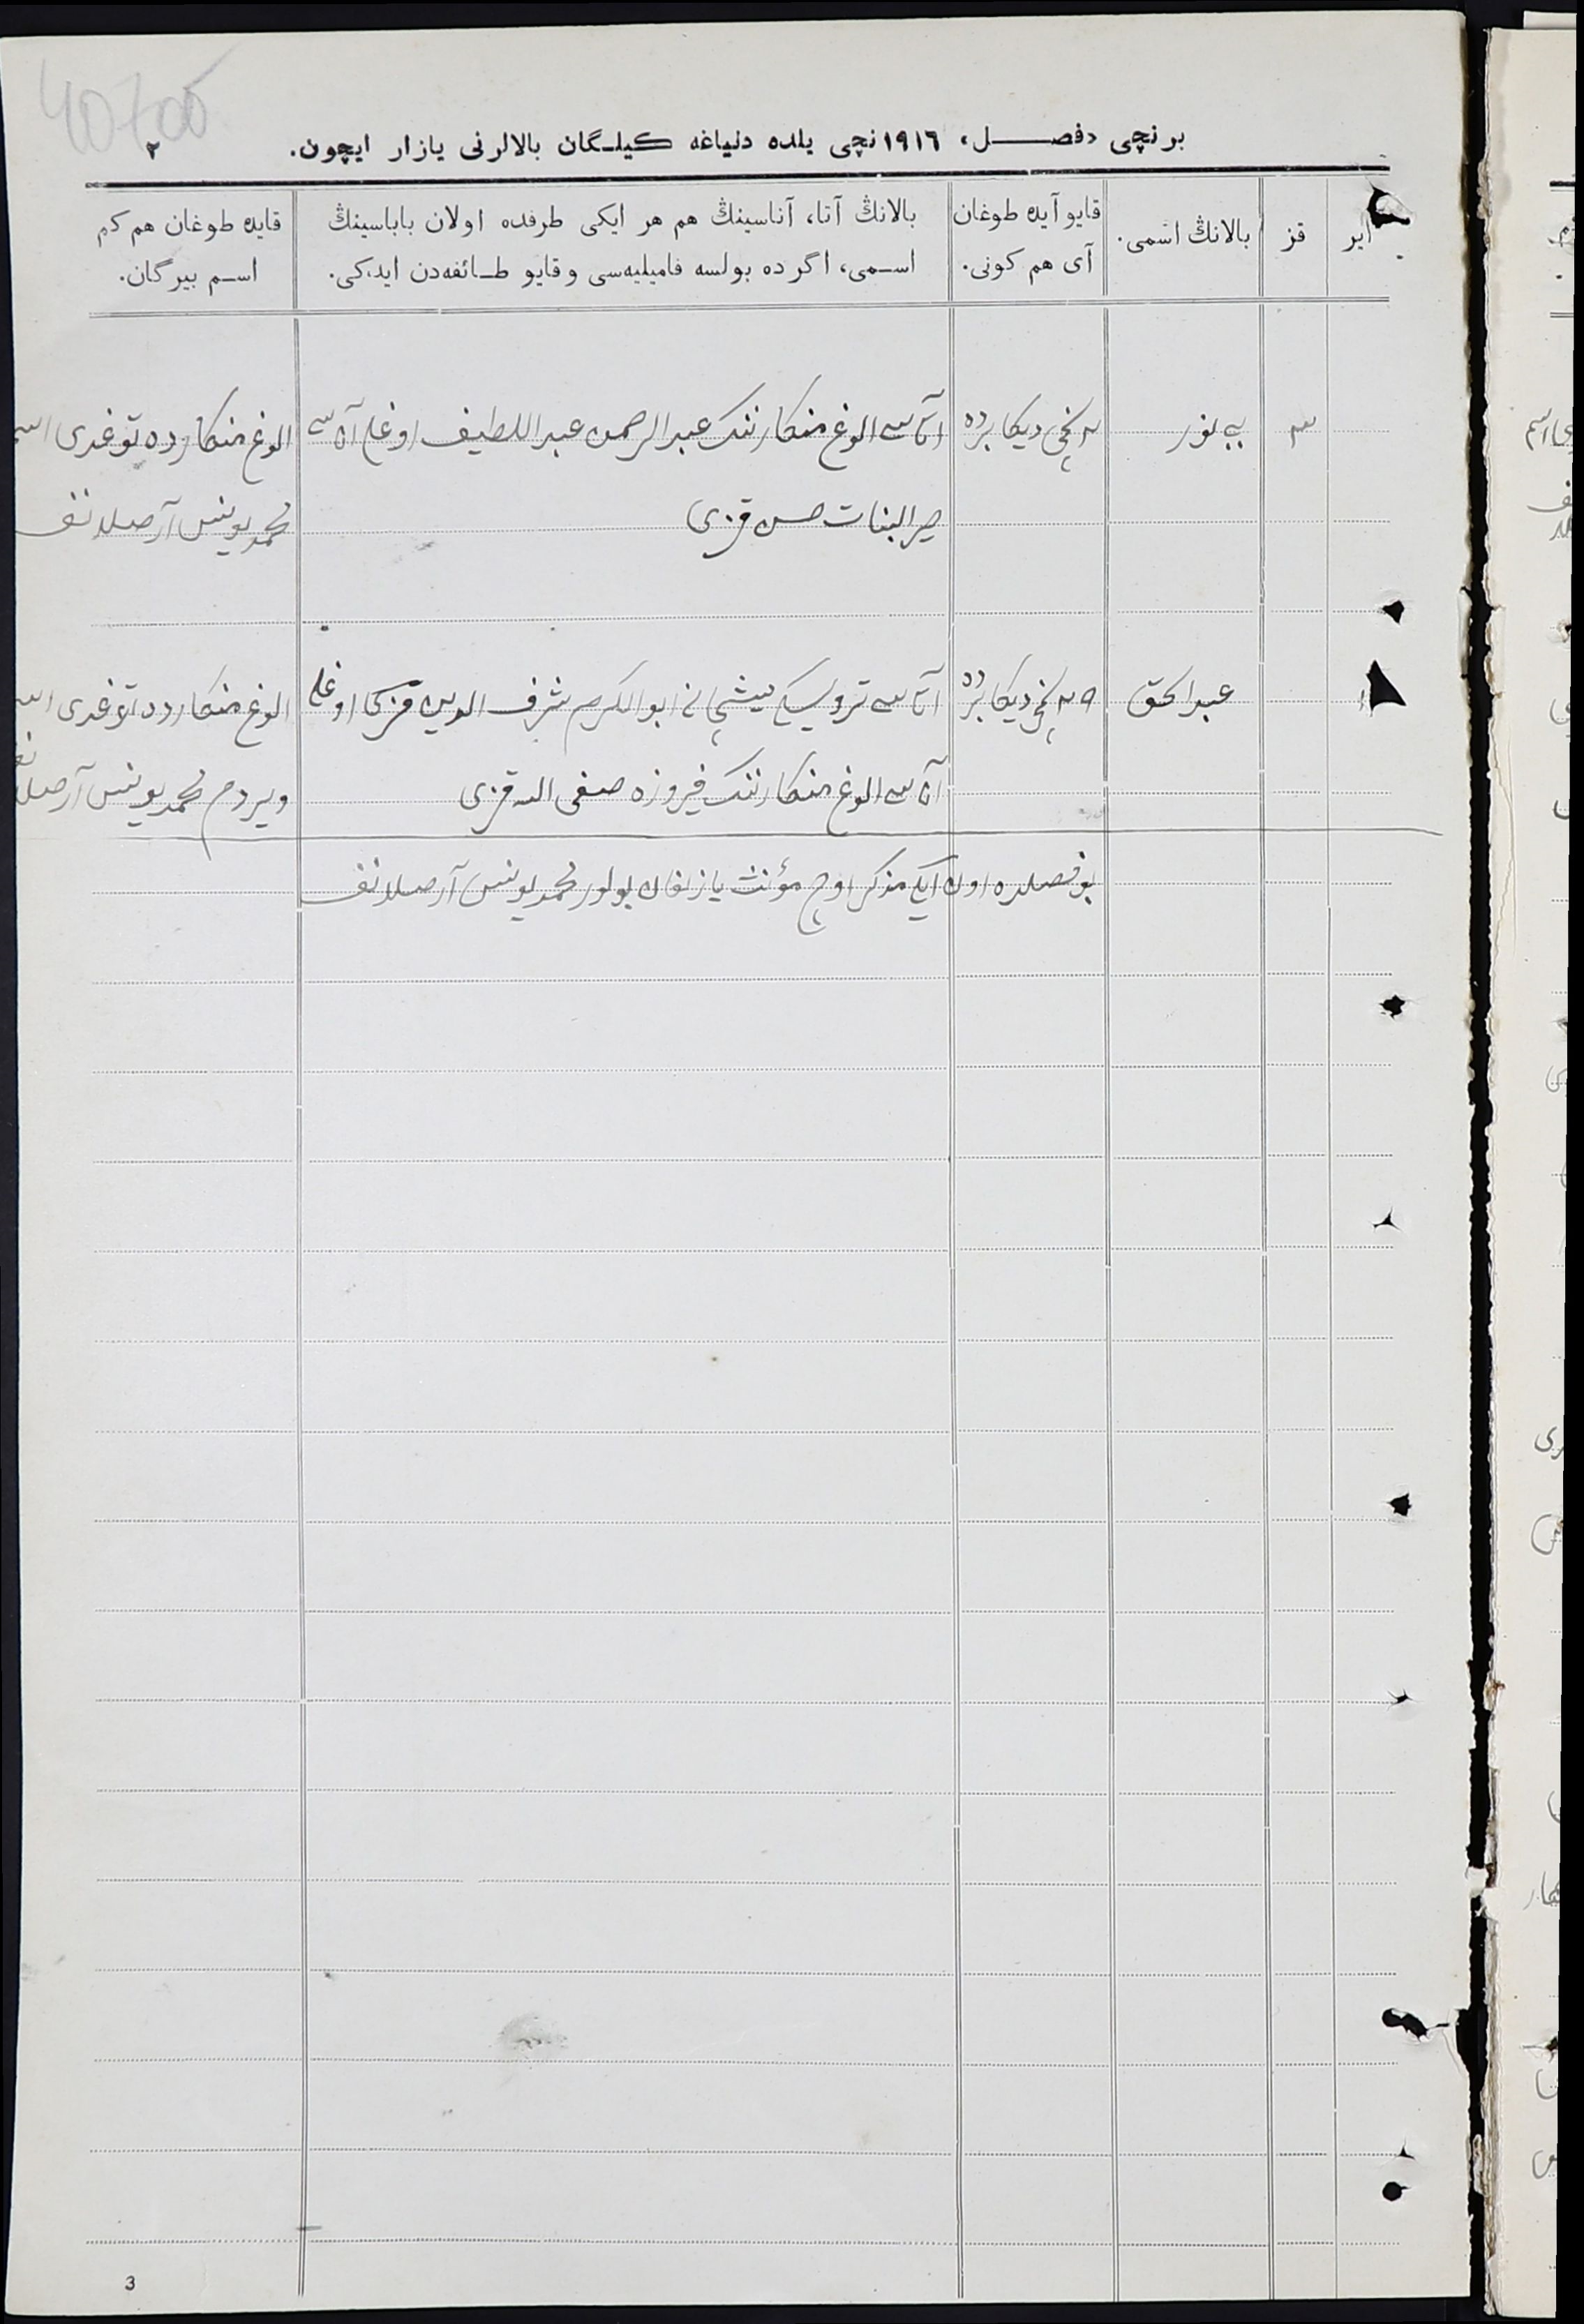 40700
برنچی «فصل» ١٩١٦نچی یلده دنیاغه کیلگان بالالرنی یازار ایچون.
٢
ایر
قز
بالانڭ اسمی.
قایو آیده طوغان
آی هم کونی.
بالانڭ آتا، آناسینڭ هم هر ایکی طرفده اولان باباسینڭ
اسمی، اگر ده بولسه فامیلیه‌سی و قایو طائفه‌دن ایدکی.
قایده طوغان هم کم
اسم بیرگان.
٣
بی بی نور
نچی دیکابرده
آتاسی الوغ منکارننک عبدالرحمن عبداللطیف اوغلی آناسی
الوغ منکارده توغدی اسم
خیرالبنات حسن قزی
محمد یونس آرصلانف
عبدالحق
نچی دیکابرده
آتاسی ترویسکی میشچانی ابوالکرم شرف الدین اوغلی
الوغ منکارده توغدی اسم
آناسی الوغ منکارننک فیروزه صفی الله قزی
ویردم محمد یونس آرصلانف
بو فصلده اون ایکی مذکر اوچ مؤنث یازلغان بولور محمد یونس آرصلانف
3